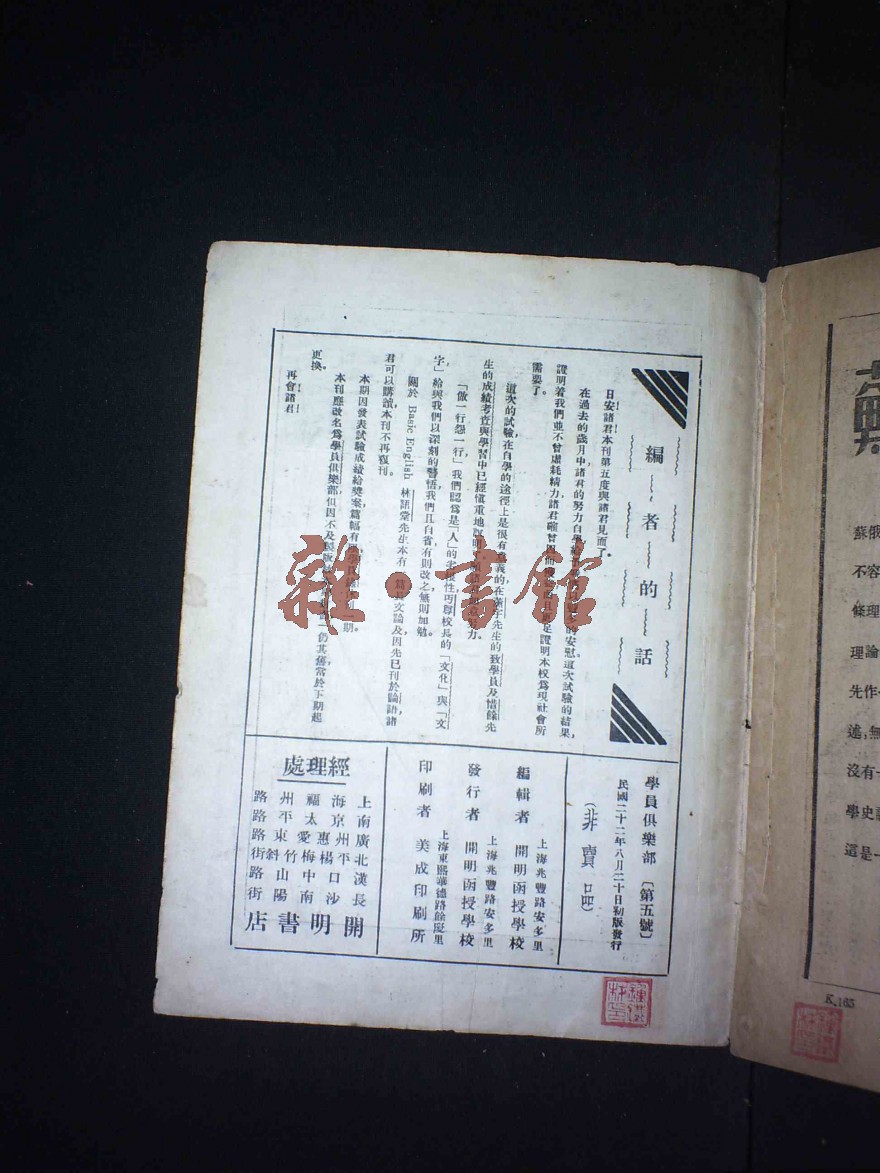 編者的話
日安諸君本刊第五度與諸君見面了。
在過去的歲月中諸君的努力自學 的安慰這次試驗的結果,
證明着我們並不曾虛耗精力諸君確曾 證明本校爲現社會所
需要了。
這次的試驗在自學的途徑上是很有意義的在 先生的致學員及惜餘先
生的成績考查與學習中已經慎重地說明 努力。
「做一行怨一行」我們認爲是「人」的劣根性丏尊校長的「文化」與「文
字」給與我們以深刻的警悟我們且自省有則改之無則加勉。
關於 Basic English 林語堂先生本有一篇長文論及因先已刊於論語諸
君可以購讀本刊不再復刊。
本期因發表試驗成績給獎案篇幅有限 期。
本刊應改名爲學員俱樂部但因不及製版 仍其舊當於下期起
更換。
再會諸君
學員俱樂部 〔第五號〕
民國二十二年八月二十日初版發行
(非賣品)
編輯者 上海兆豐路安多里 開明函授學校
發行者 上海兆豐路安多里 開明函授學校
印刷者 上海東熙華德路餘慶里 美成印刷所
經理處
上海福州路
南京太平路
廣州惠愛東路
北平楊梅竹斜街
漢口中山路
長沙南陽街
開明書店
雜·書館
K.165
蘇俄
不容
條理
理論
先作
述,無
沒有一
學史
這是一